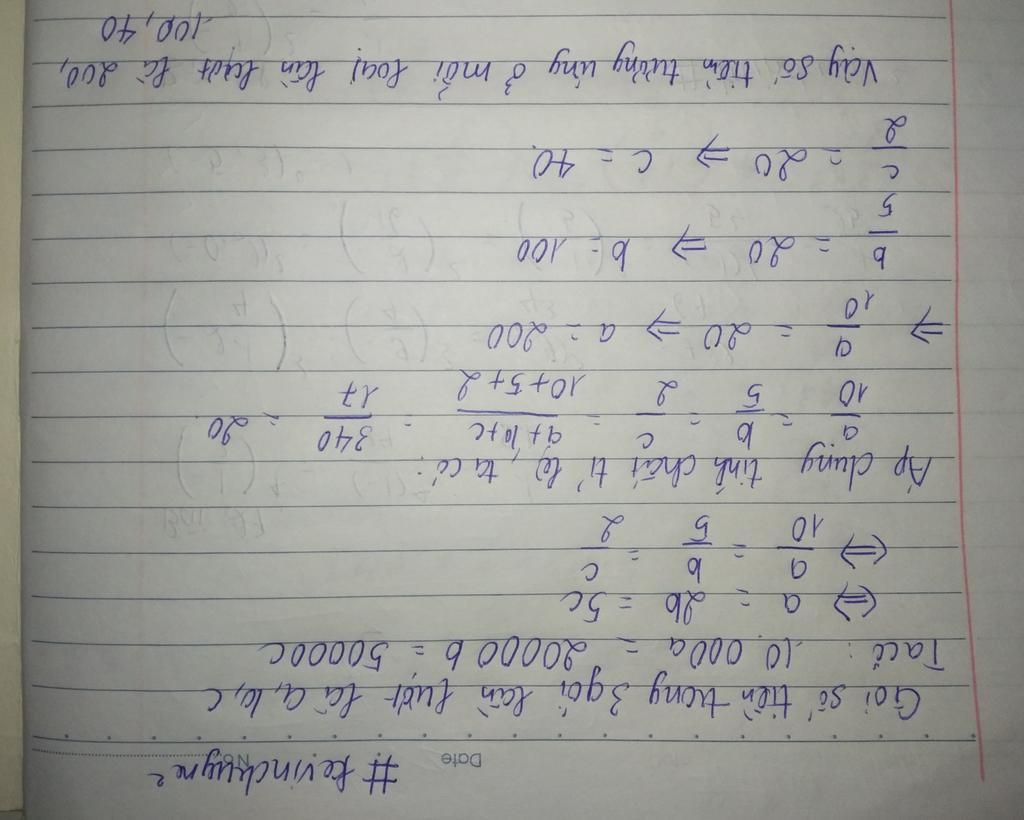 #Kevinchuyne
No. Date
Gọi số tiền trong 3 gói lần lượt là a, b, c
Ta có: 10.000a = 20000b = 50000c
⟺ a = 2b = 5c
⟺ a/10 = b/5 = c/2
Áp dụng tính chất tỉ lệ, ta có:
a/10 = b/5 = c/2 = a+b+c/10+5+2 = 340/17 = 20.
⟹ a/10 = 20 ⟹ a = 200
b/5 = 20 ⟹ b = 100
c/2 = 20 ⟹ c = 40.
Vậy số tiền tương ứng ở mỗi loại lần lượt là 200,
100, 40